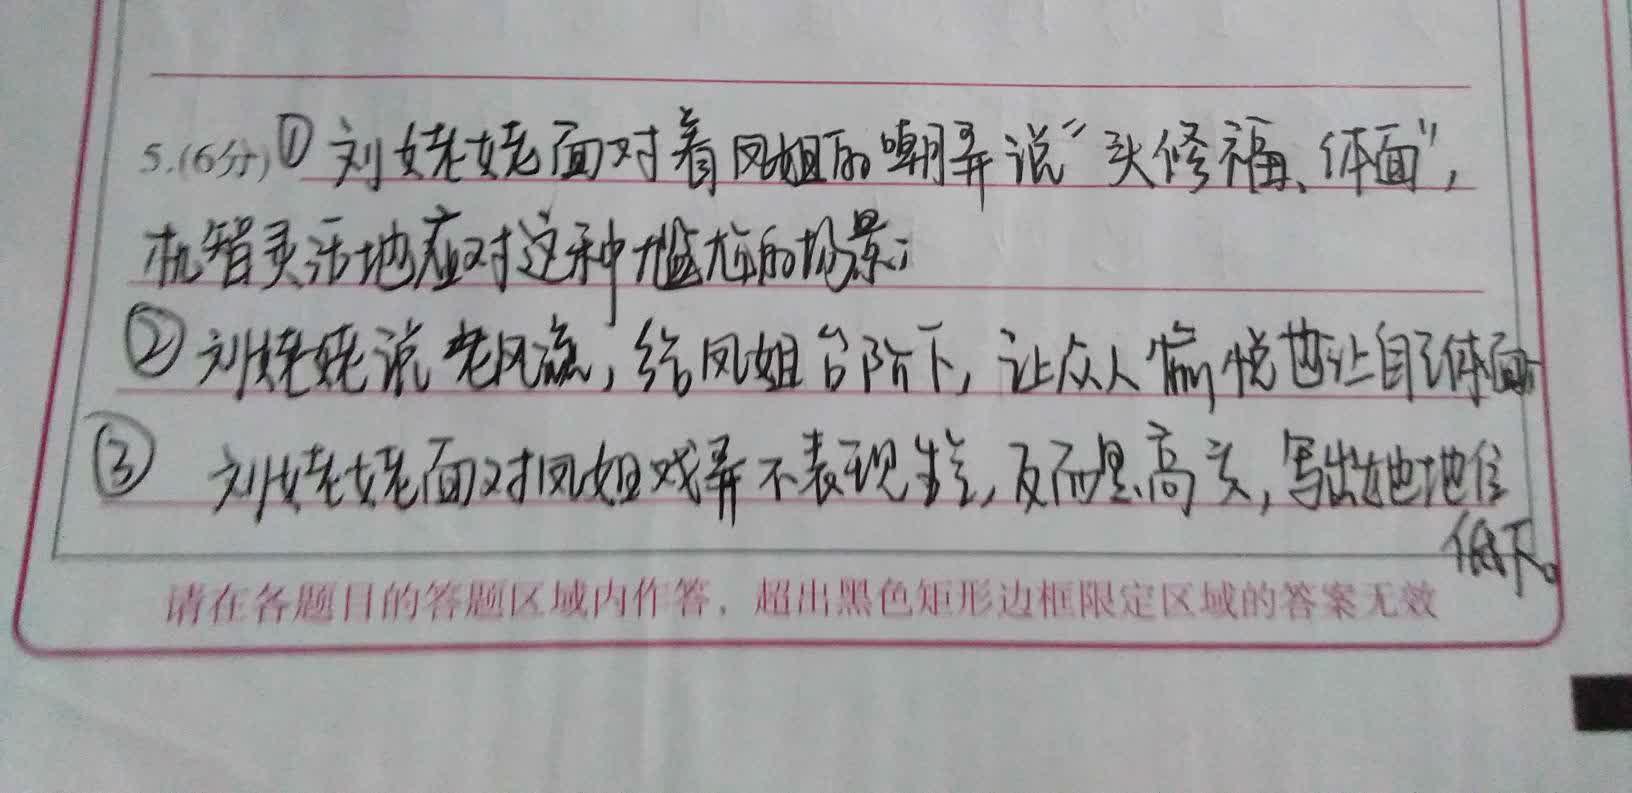 5.(6分)①刘姥姥面对着凤姐的嘲弄说“头修福、体面”，
机智灵活地应对这种尴尬的场景；
②刘姥姥说老风流，给凤姐台阶下，让众人愉悦也让自己体面
③ 刘姥姥面对凤姐戏弄不表现生气，反而更高兴，写出她地位
低下。
请在各题目的答题区域内作答，超出黑色矩形边框限定区域的答案无效